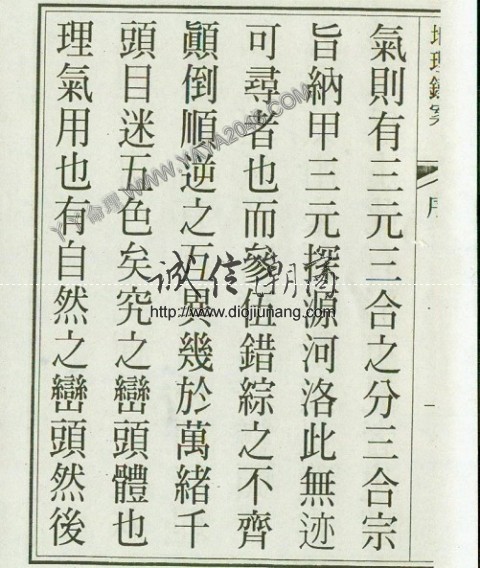 地理錄案
序
一
氣則有三元三合之分三合宗
旨納甲三元探源河洛此無迹
可尋者也而參伍錯綜之不齊
顚倒順逆之互異幾於萬緒千
頭目迷五色矣究之巒頭體也
理氣用也有自然之巒頭然後
YY倫理 WWW.YAYA2048.COM
诚信潮阁
http://www.diojiunang.com